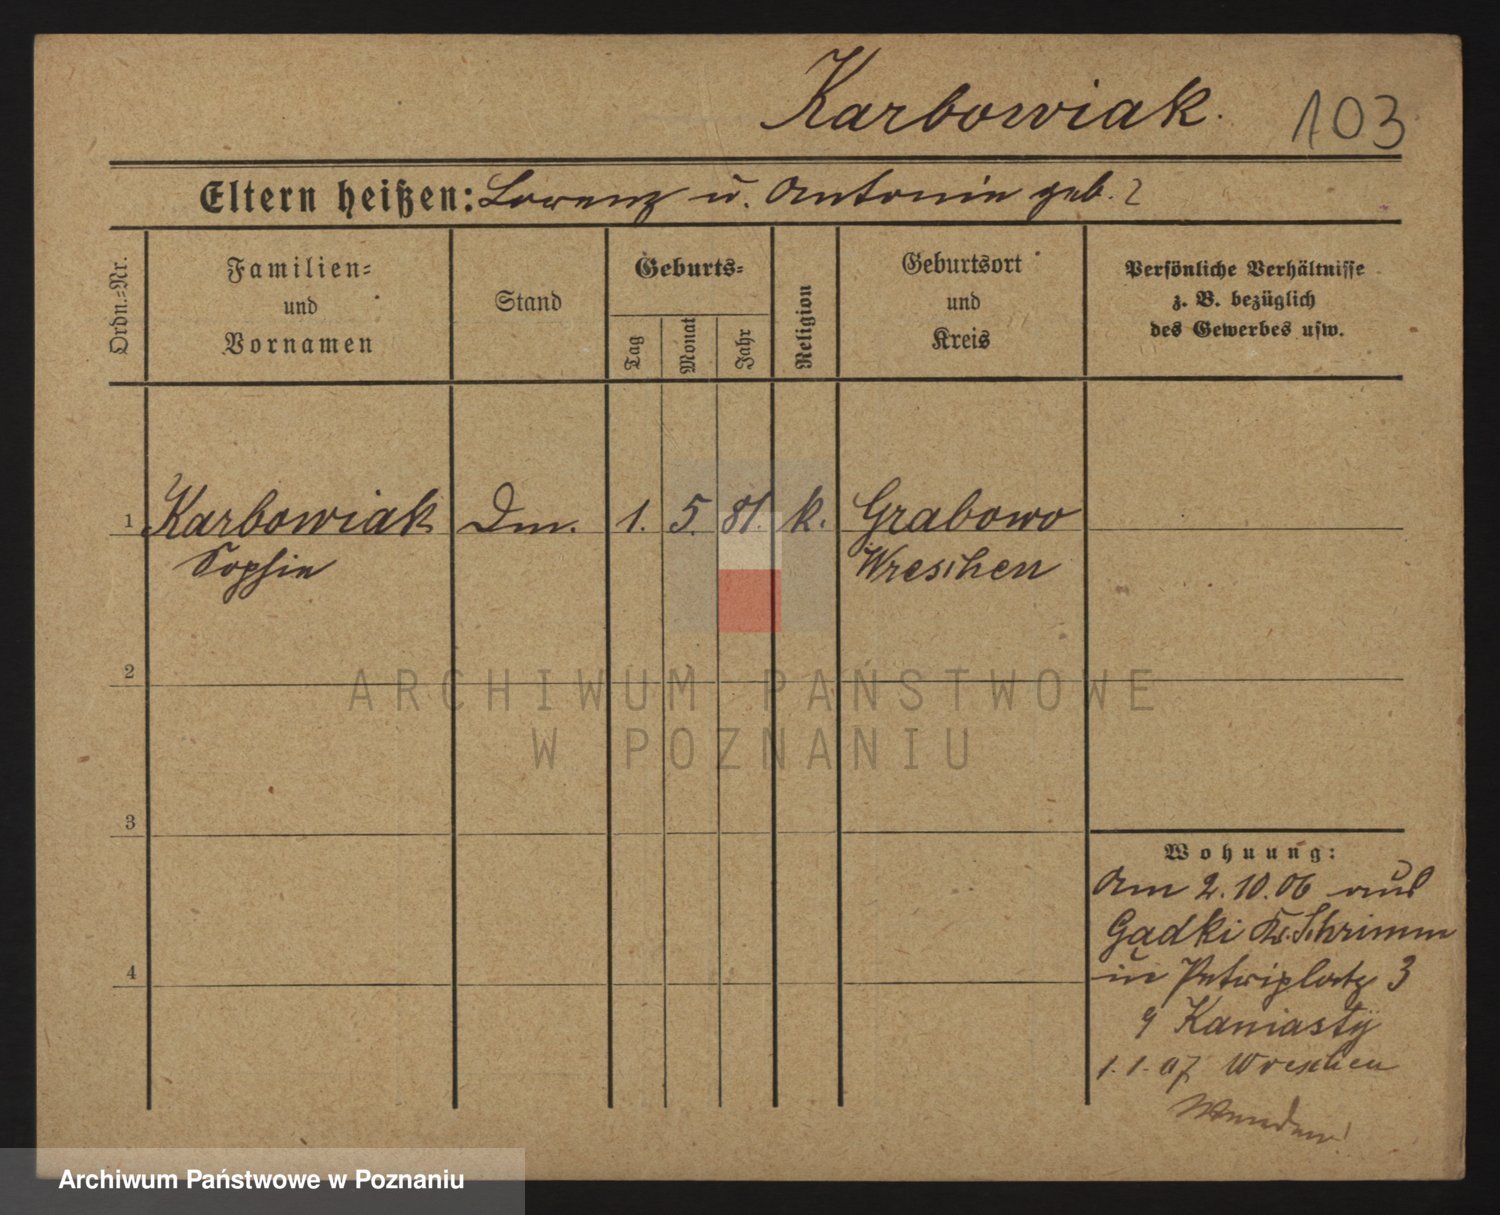 Karbowiak. 103
Eltern heißen: Lorenz u. Antonie geb. ?
Ordn.=Nr.
Familien=
und
Vornamen
Stand
Geburts=
Tag
Monat
Jahr
Religion
Geburtsort
und
Kreis
Persönliche Verhältnisse
z. B. bezüglich
des Gewerbes usw.
1 Karbowiak Dm. 1. 5. 81. k. Grabowo
Sophie Wreschen
2
ARCHIWUM PAŃSTWOWE
W POZNANIU
3
Wohnung:
Am 2.10.06 aus
Gądki Kr. Schrimm
4
in Petriplatz 3
Kaniasty
1.1.07 Wreschen
Wenden!
Archiwum Państwowe w Poznaniu